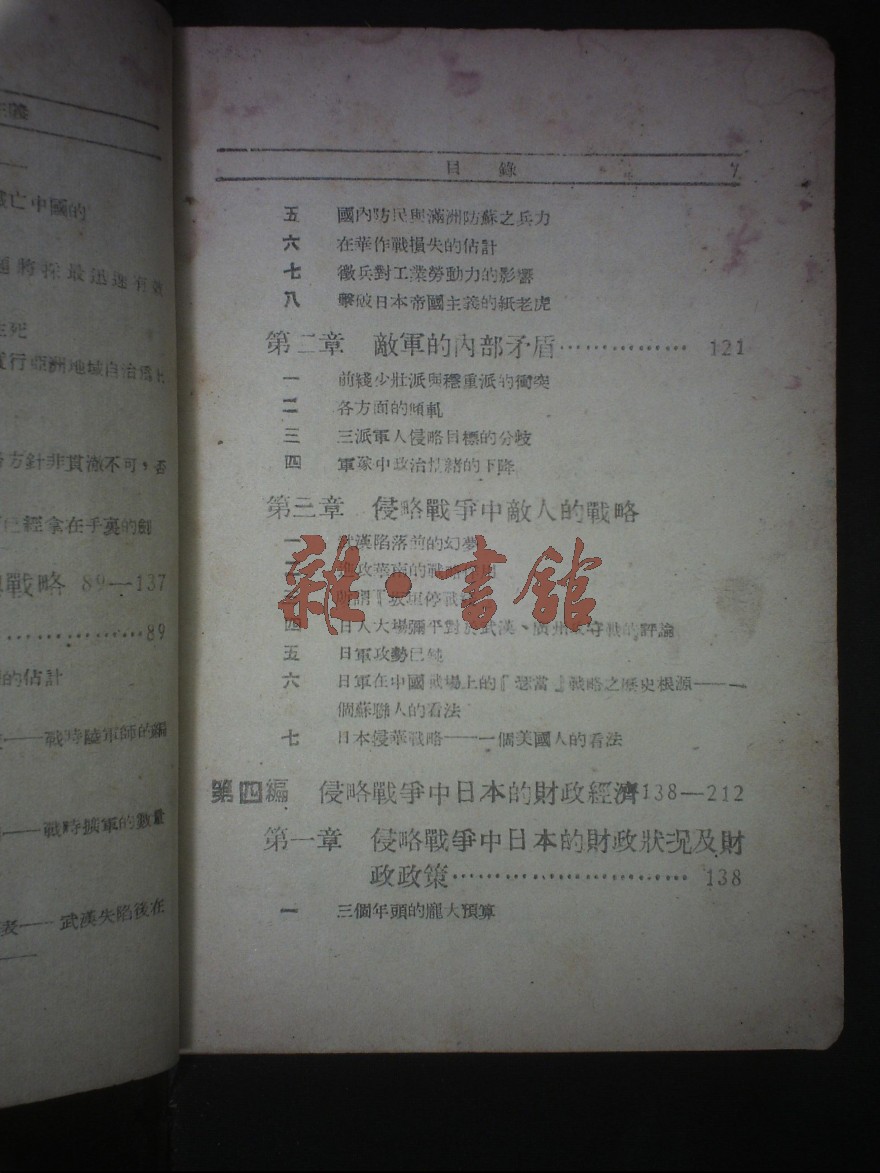 主義
滅亡中國的
將採最迅速有效
生死
實行亞洲地域自治僑上
方針非貫澈不可，否
已經拿在手裏的劍
戰略 89—137
……89
的估計
——戰時陸軍師的編
——戰時擴軍的數量
——武漢失陷後在
目錄 7
五 國內防民與滿洲防蘇之兵力
六 在華作戰損失的估計
七 徵兵對工業勞動力的影響
八 擊破日本帝國主義的紙老虎
第二章 敵軍的內部矛盾……………… 121
一 前綫少壯派與穩重派的衝突
二 各方面的傾軋
三 三派軍人侵略目標的分歧
四 軍隊中政治情緒的下降
第三章 侵略戰爭中敵人的戰略
一 武漢陷落前的幻夢
二 進攻華南的戰略
三 所謂『坂垣停戰
四 日人大場彌平對於武漢、廣州攻守戰的評論
五 日軍攻勢已鈍
六 日軍在中國戰場上的『 』戰略之歷史根源——一
個蘇聯人的看法
七 日本侵華戰略——一個美國人的看法
第四編 侵略戰爭中日本的財政經濟138—212
第一章 侵略戰爭中日本的財政狀況及財
政政策……………………… 138
一 三個年頭的龐大預算
雜·書館